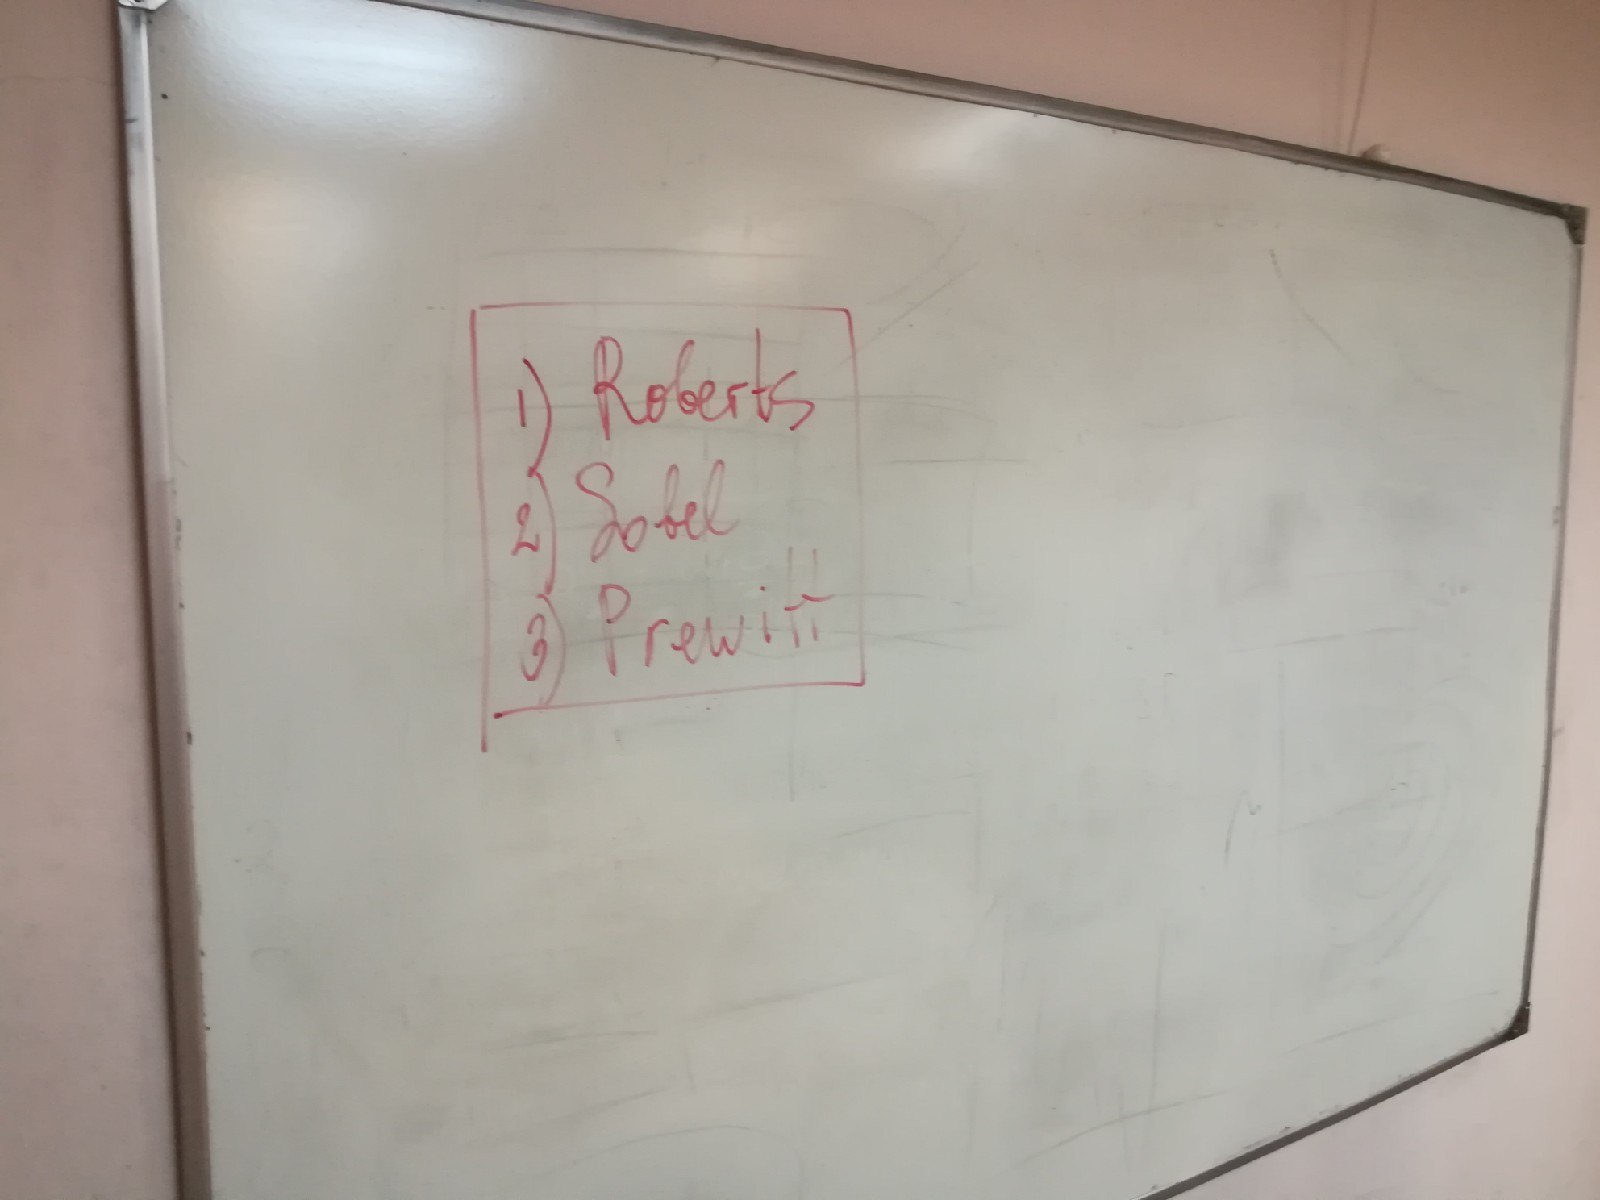 1) Roberts
2) Sobel
3) Prewitt